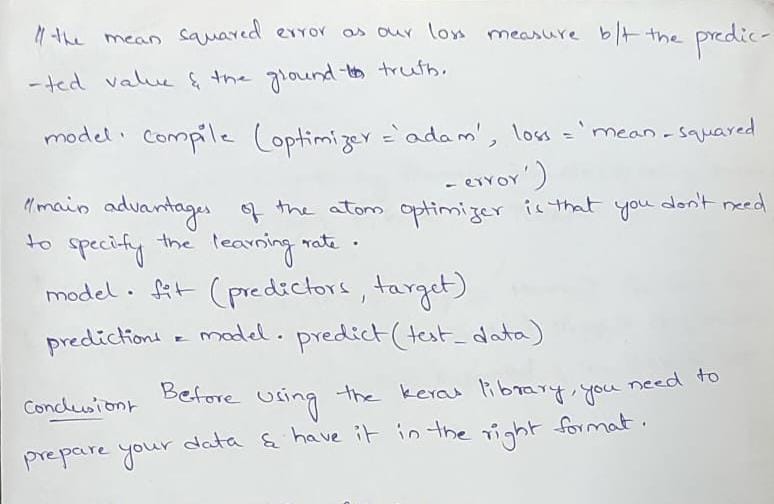 // the mean squared error as our loss measure b/t the predic-
-ted value & the ground-to truth.
model. compile (optimizer = 'adam', loss = 'mean-squared
-error')
// main advantages of the atom optimizer is that you don't need
to specify the learning rate.
model. fit (predictors, target)
predictions = model. predict (test_data)
Conclusion: Before using the keras library, you need to
prepare your data & have it in the right format.